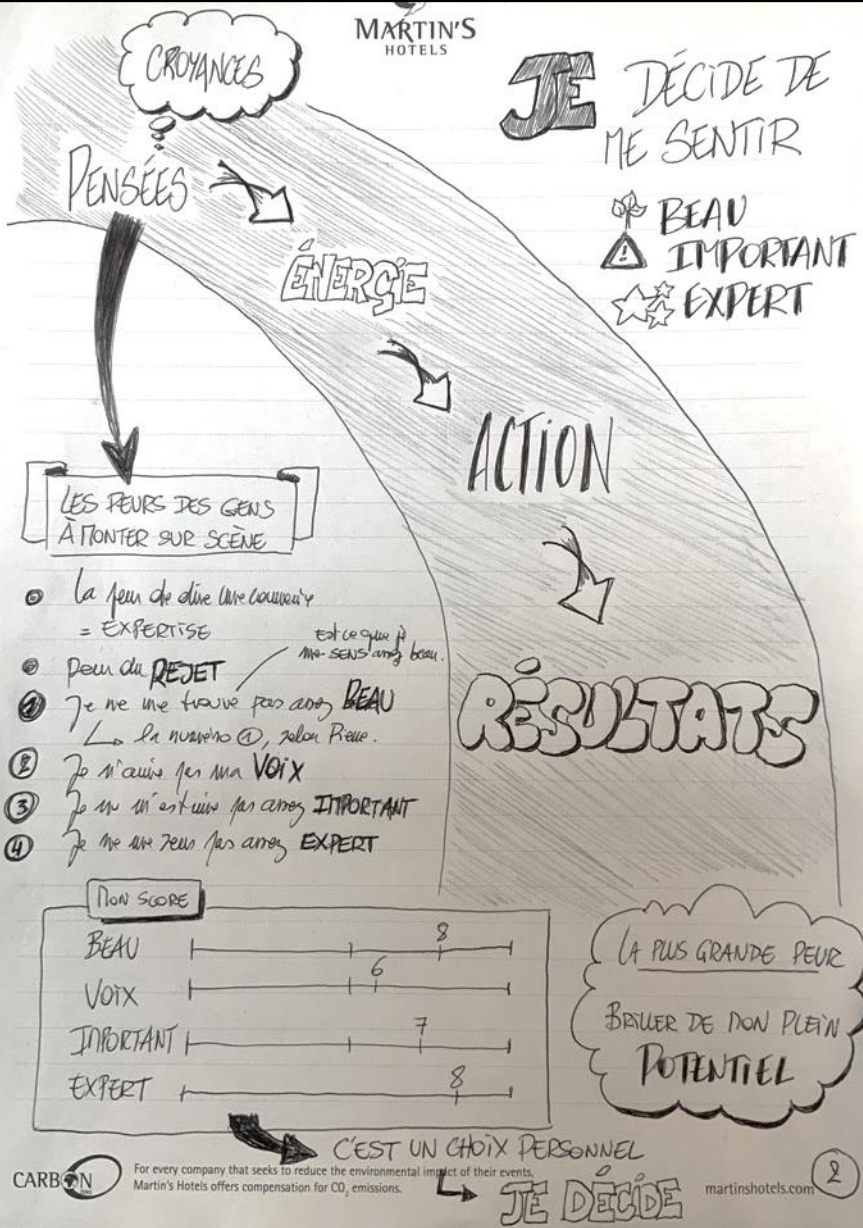 MARTIN'S
HOTELS
CROYANCES
PENSÉES
ÉNERGIE
ACTION
RÉSULTATS
JE DÉCIDE DE
ME SENTIR
BEAU
IMPORTANT
EXPERT
LES PEURS DES GENS
À MONTER SUR SCÈNE
La peur de dire une connerie
= EXPERTISE
peur du REJET
Est ce que je
me SENS assez beau.
1 Je ne me trouve pas assez BEAU
la numéro 1, selon Pierre.
2 Je n'aime pas ma VOIX
3 Je ne m'estime pas assez IMPORTANT
4 Je ne me sens pas assez EXPERT
MON SCORE
BEAU 8
VOIX 6
IMPORTANT 7
EXPERT 8
LA PLUS GRANDE PEUR
BRILLER DE MON PLEIN
POTENTIEL
C'EST UN CHOIX PERSONNEL
JE DÉCIDE
CARBON
For every company that seeks to reduce the environmental impact of their events,
Martin's Hotels offers compensation for CO₂ emissions.
martinshotels.com
2